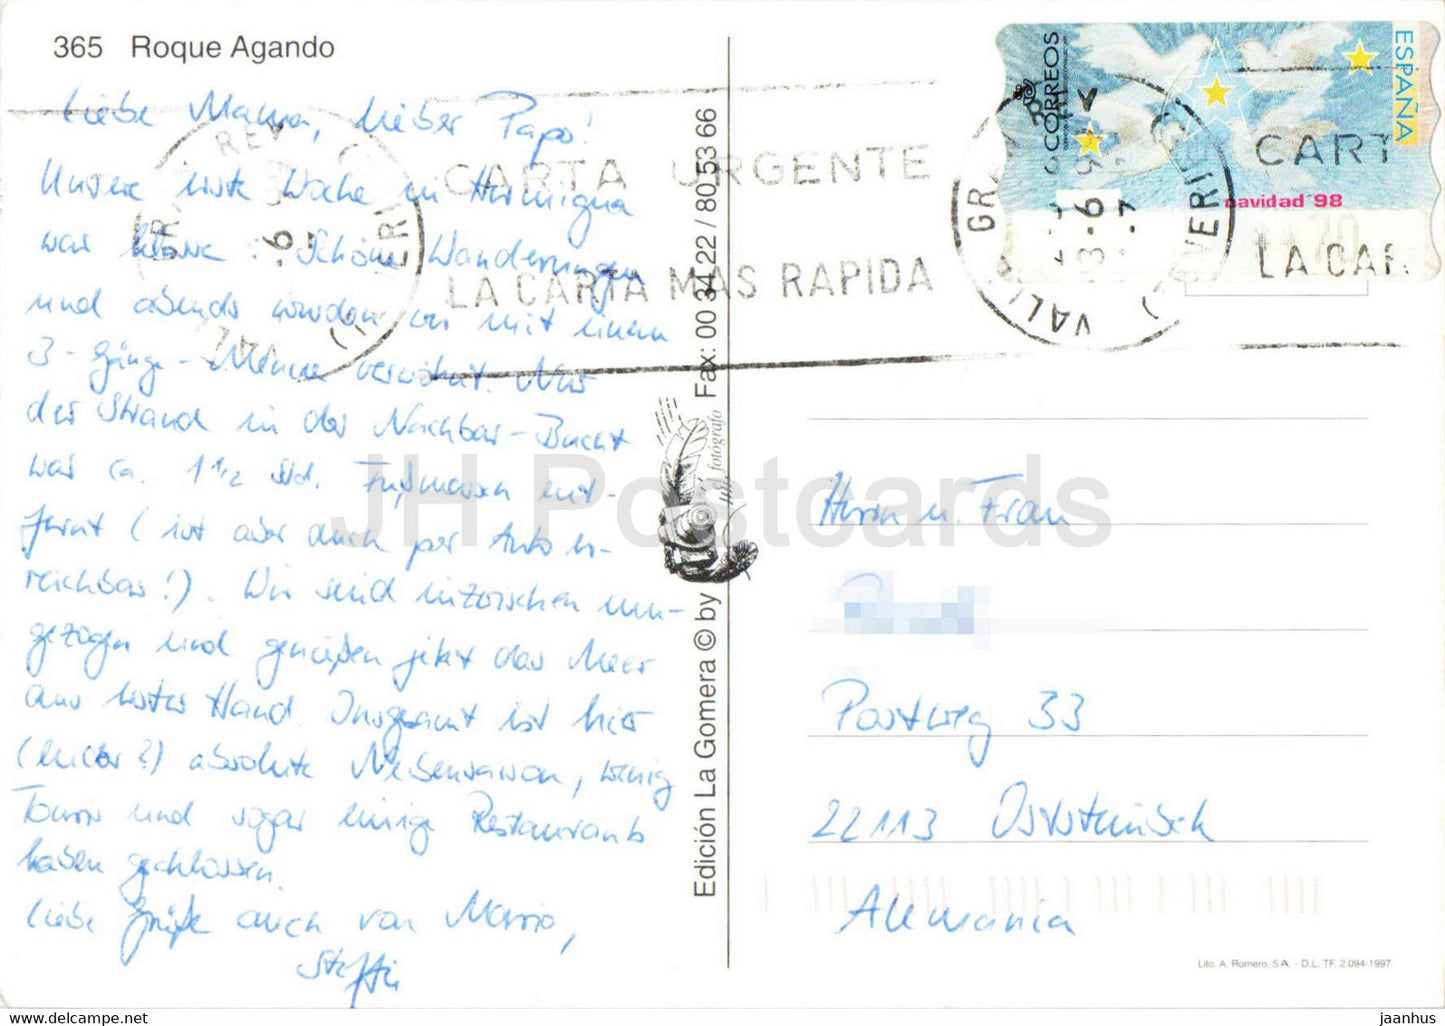 365 Roque Agando
Liebe Mama, lieber Papa!
Unsere erste Woche in Hermigua
war klasse. Schöne Wanderungen
und abends wurden wir mit einem
3-Gänge-Menue verwöhnt. Nur
der Strand in der Nachbar-Bucht
war ca. 1 1/2 Std. Fußmarsch ent-
fernt (ist aber auch per Auto er-
reichbar!). Wir sind inzwischen um-
gezogen und genießen jetzt das Meer
aus erster Hand. Insgesamt ist hier
(leider?) absolute Nebensaison, wenig
Touris und sogar einige Restaurants
haben geschlossen.
Liebe Grüße auch von Mario,
Steffi
Edición La Gomera © by
fotógrafo
Fax: 00 34 22 / 80 53 66
CARTA URGENTE
LA CARTA MAS RAPIDA
CORREOS
ESPAÑA
navidad '98
CART
LA CAR
Herrn u. Frau
Postweg 33
22113 Oststeinbek
Alemania
Lito. A. Romero, S.A. - D.L. TF. 2.094-1997
JH Postcards
jaanhus - www.delcampe.net